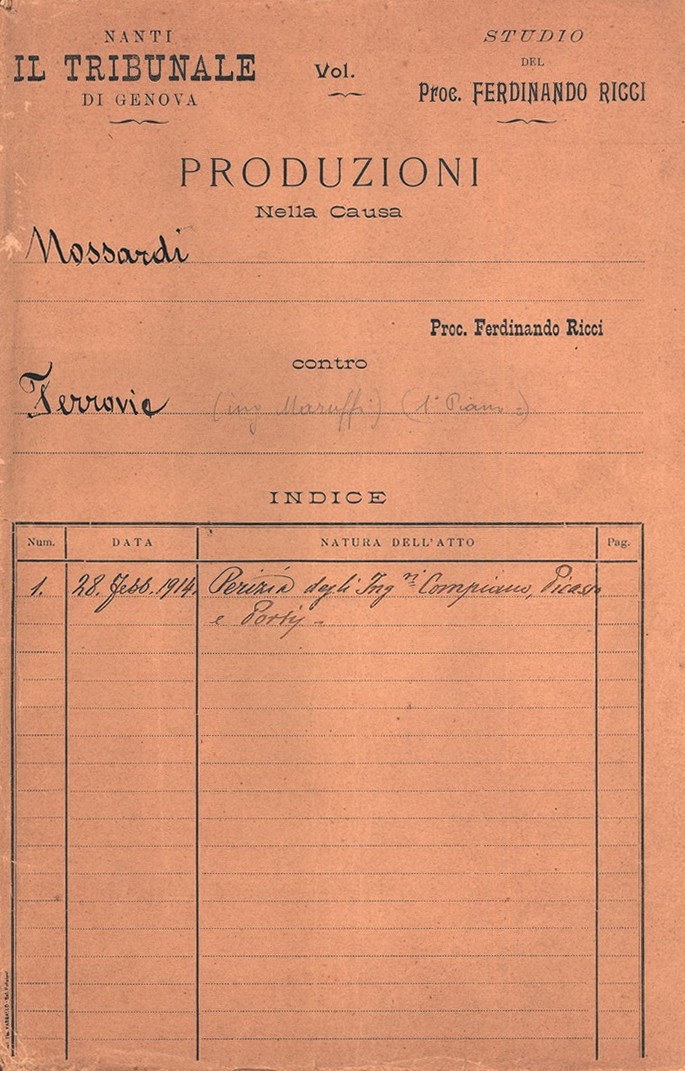 NANTI
IL TRIBUNALE
DI GENOVA
Vol.
STUDIO
DEL
Proc. FERDINANDO RICCI
PRODUZIONI
Nella Causa
Mossardi
Proc. Ferdinando Ricci
contro
Ferrovie (ing Maruffi) (1° Piano)
INDICE
Num. DATA NATURA DELL'ATTO Pag.
1. 28. Febb. 1914. Perizia degli Ing.ni Compiano, Picasso
e